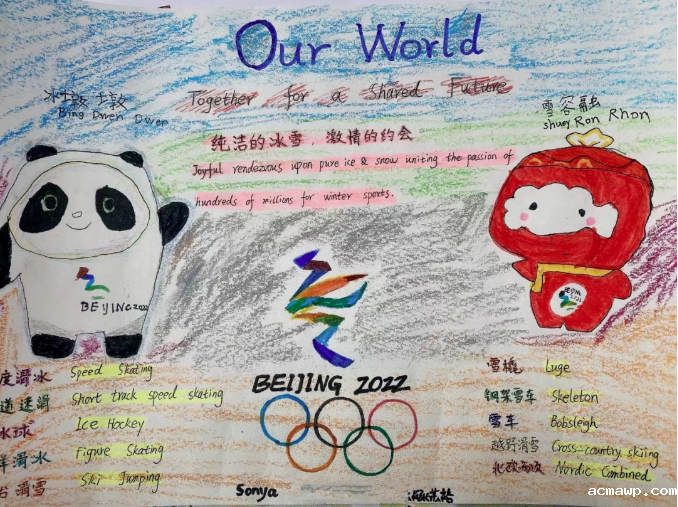 Our World
Together for a Shared Future
冰墩墩
Bing Dwen Dwen
雪容融
Shuey Ron Rhon
纯洁的冰雪，激情的约会
Joyful rendezvous upon pure ice & snow uniting the passion of
hundreds of millions for winter sports.
BEIJING 2022
BEIJING 2022
度滑冰 Speed Skating
道速滑 Short track speed skating
冰球 Ice Hockey
样滑冰 Figure Skating
台滑雪 Ski Jumping
雪橇 Luge
钢架雪车 Skeleton
雪车 Bobsleigh
越野滑雪 Cross-country skiing
北欧两项 Nordic Combined
Sonya
acmawp.com